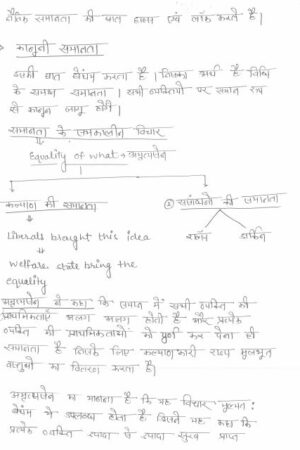 नैतिक समानता की बात हाब्स एवं लॉक करते हैं।
कानूनी समानता
इसकी बात बेंथम करता है। जिसका अर्थ है विधि
के समक्ष समानता। सभी व्यक्तियों पर समान रूप
से कानून लागू होंगे।
समानता के समकालीन विचार
Equality of what → अमृत्यसेन
कल्याण की समानता
② संसाधनों की समानता
Liberals brought this idea
रॉल्स डार्किन
welfare state bring the
equality
अमृत्यसेन ने कहा कि समाज में सभी व्यक्ति की
प्राथमिकताएँ अलग अलग होती हैं और प्रत्येक
व्यक्ति की प्राथमिकताओं को पूर्ण कर देना ही
समानता है जिसके लिए कल्याणकारी राज्य मूलभूत
वस्तुओं का वितरण करता है।
अमृत्यसेन का मानना है कि यह विचार मूलतः
बेंथम से उपलब्ध होता है जिसने यह कहा कि
प्रत्येक व्यक्ति ज्यादा से ज्यादा सुख प्राप्त